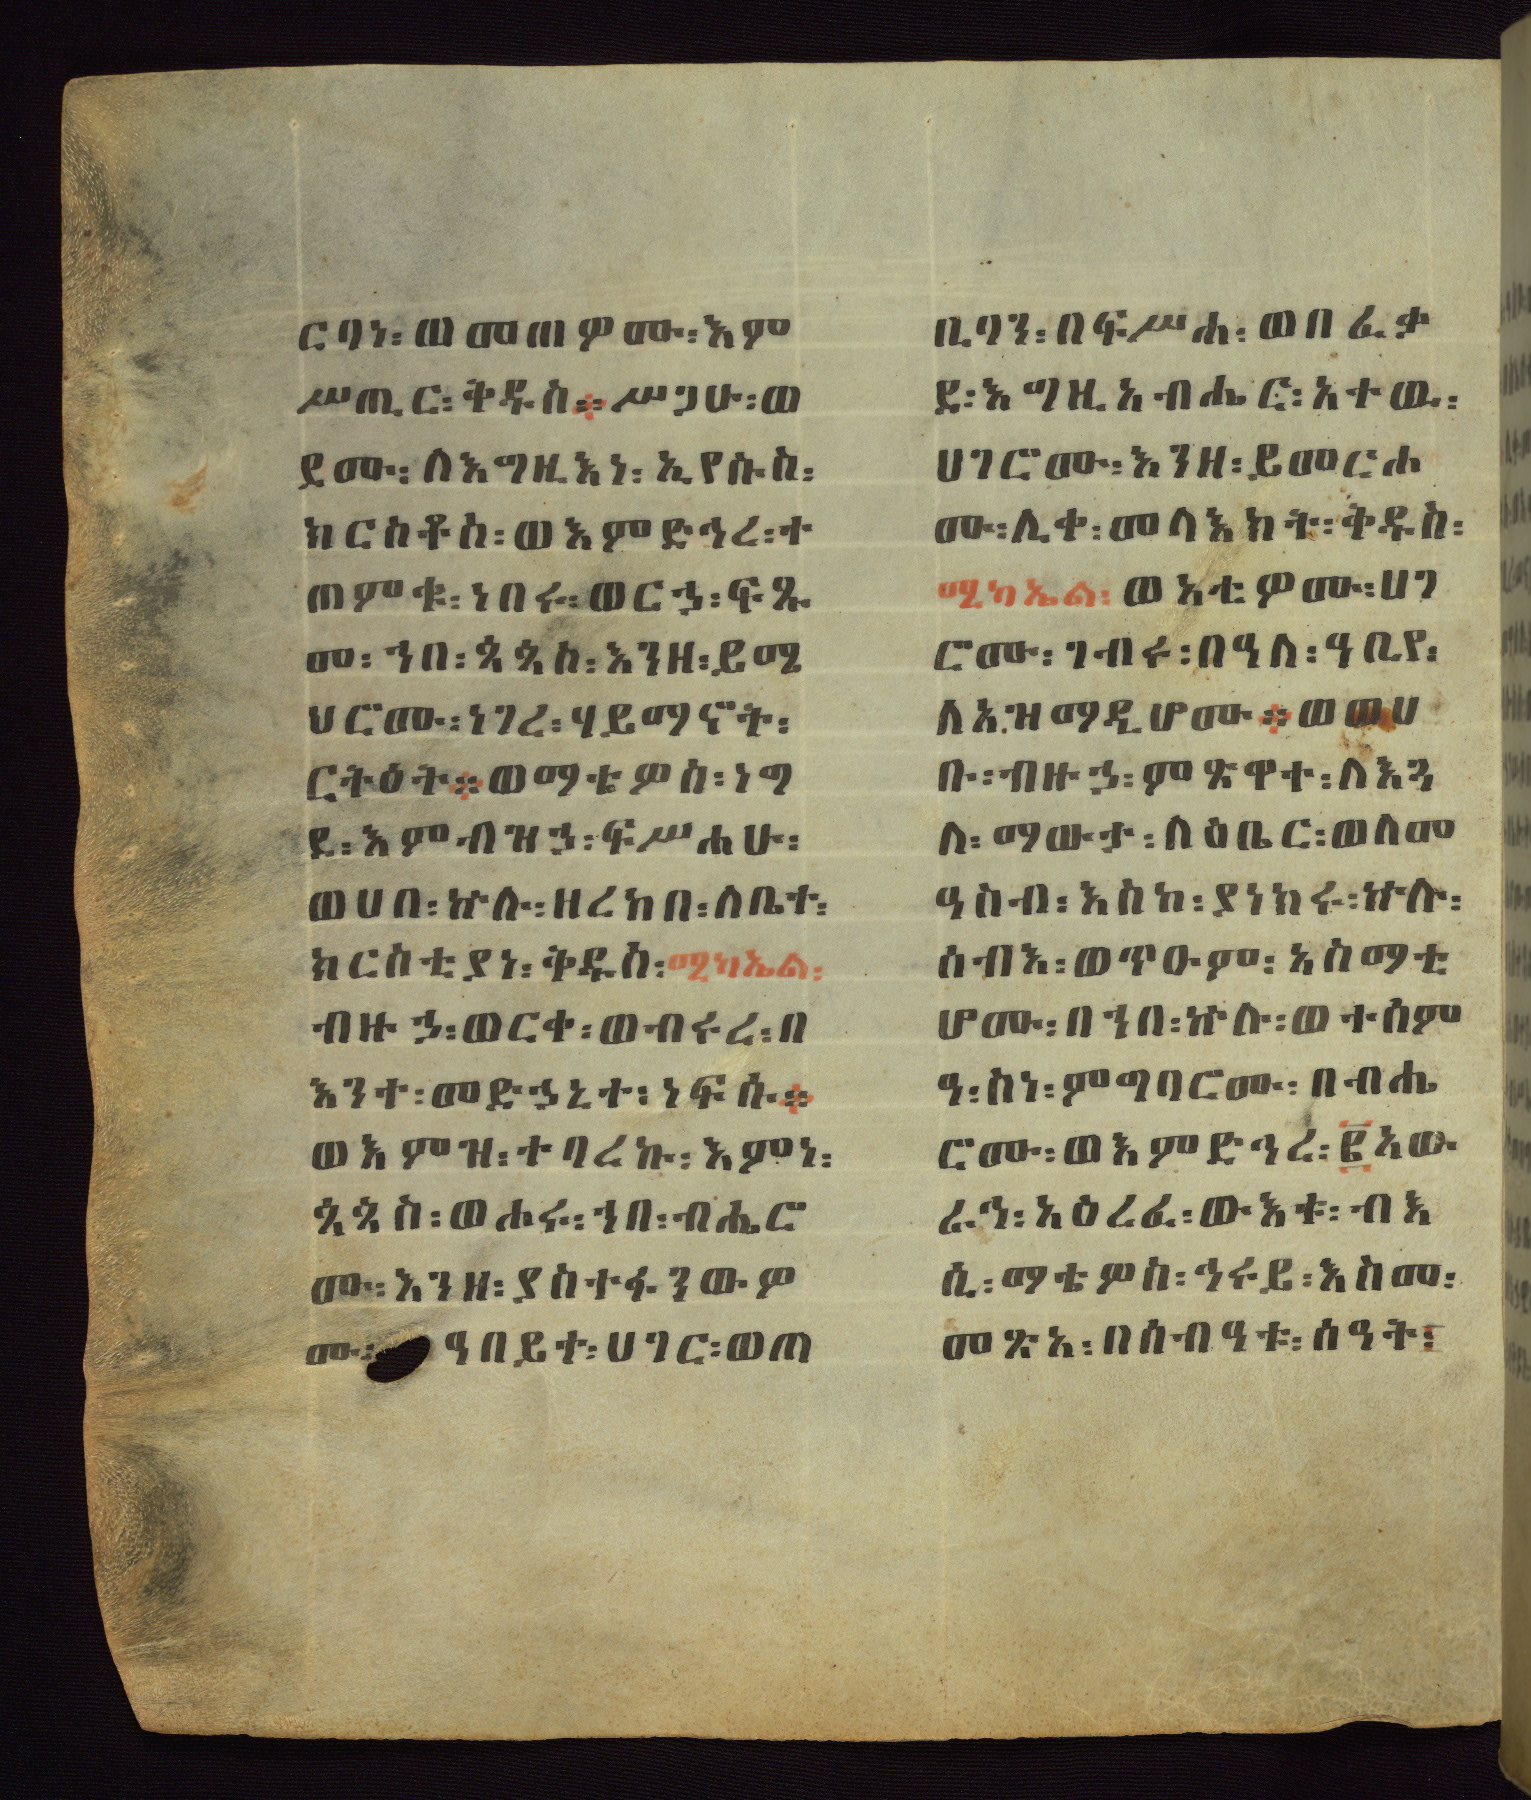 ርባነ፡ወመጠዎሙ፡እም
ሥጢር፡ቅዱስ፨ሥጋሁ፡ወ
ደሙ፡ለእግዚእነ፡ኢየሱስ፡
ክርስቶስ፡ወእምድኅረ፡ተ
ጠምቁ፡ነበሩ፡ወርኃ፡ፍጹ
መ፡ኀበ፡ጳጳስ፡እንዘ፡ይሜ
ህሮሙ፡ነገረ፡ሃይማኖት፡
ርትዕት፨ወማቴዎስ፡ነግ
ደ፡እምብዝኃ፡ፍሥሐሁ፡
ወሀበ፡ኵሉ፡ዘረከበ፡ለቤተ፡
ክርስቲያነ፡ቅዱስ፡ሚካኤል፡
ብዙኃ፡ወርቀ፡ወብሩረ፡በ
እንተ፡መድኃኒተ፡ነፍሱ፨
ወእምዝ፡ተባረኩ፡እምነ፡
ጳጳስ፡ወሐሩ፡ኀበ፡ብሔሮ
ሙ፡እንዘ፡ያስተፋንውዎ
ሙ፡ዓበይተ፡ሀገር፡ወጠ
ቢባን፡በፍሥሐ፡ወበፈቃ
ደ፡እግዚአብሔር፡አተዉ፡
ሀገሮሙ፡እንዘ፡ይመርሐ
ሙ፡ሊቀ፡መላእክት፡ቅዱስ፡
ሚካኤል፡ወአቲዎሙ፡ሀገ
ሮሙ፡ገብሩ፡በዓለ፡ዓቢየ፡
ለአዝማዲሆሙ፨ወወሀ
ቡ፡ብዙኃ፡ምጽዋተ፡ለእጓ
ለ፡ማውታ፡ለዕቤር፡ወለመ
ዓስብ፡እስከ፡ያነክሩ፡ኵሉ፡
ሰብእ፡ወጥዑም፡አስማቲ
ሆሙ፡በኀበ፡ኵሉ፡ወተሰም
ዓ፡ስነ፡ምግባሮሙ፡በብሔ
ሮሙ፡ወእምድኅረ፡፪አው
ራኅ፡አዕረፈ፡ውእቱ፡ብእ
ሲ፡ማቴዎስ፡ኅሩይ፡እስመ፡
መጽአ፡በሰብዓቱ፡ሰዓት፡